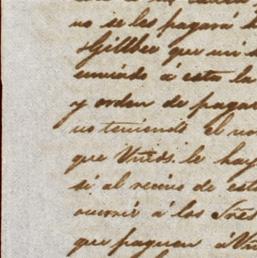 no se les pagará
que mi
enviado á esta la
y orden de pagar
no teniendo el
que Vmds. le hay
si al recivo de este
ocurrir á los Sres
que paguen á